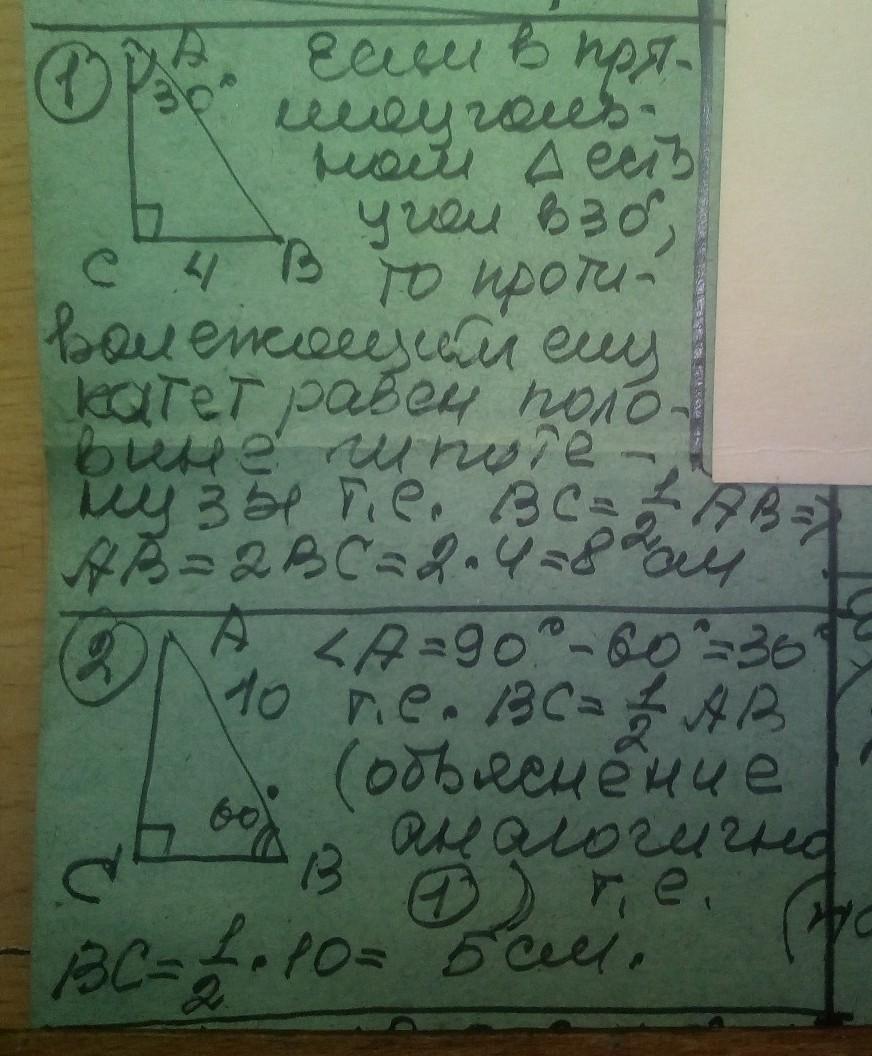 ① A
30°
C 4 B
Если в пря-
моуголь-
ном Δ есть
угол в 30°,
то проти-
волежащий ему
катет равен поло-
вине гипоте-
нузы т.е. BC = 1/2 AB =>
AB = 2BC = 2·4 = 8 см
② A
10
60°
C B
<A = 90° - 60° = 30°
т.е. BC = 1/2 AB
(объяснение
аналогично
①) т.е.
BC = 1/2 · 10 = 5 см.